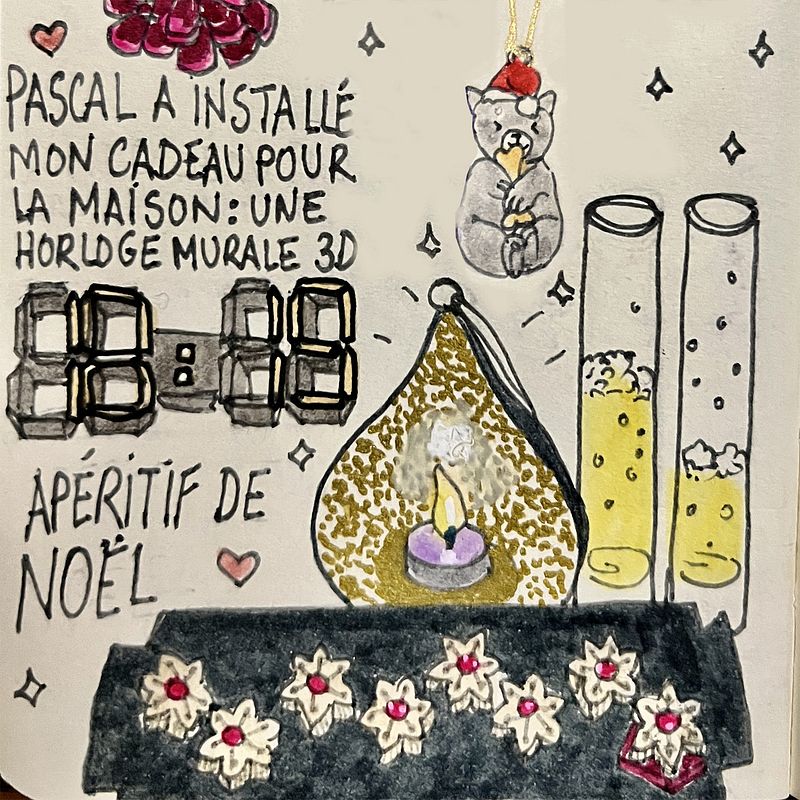 PASCAL A INSTALLÉ
MON CADEAU POUR
LA MAISON : UNE
HORLOGE MURALE 3D
APÉRITIF DE
NOËL